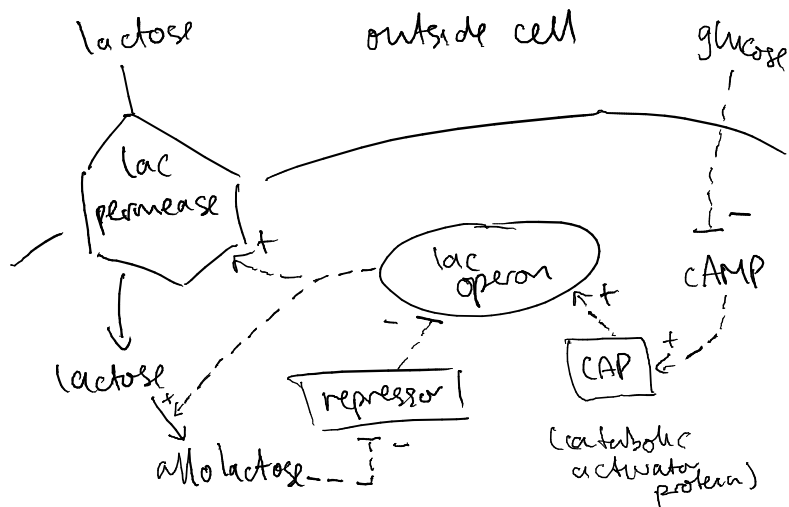 lactose
outside cell
glucose
lac
permease
+
-
lac
operon
cAMP
+
-
+
CAP
lactose
+
repressor
-
allolactose
(catabolic
activator
protein)